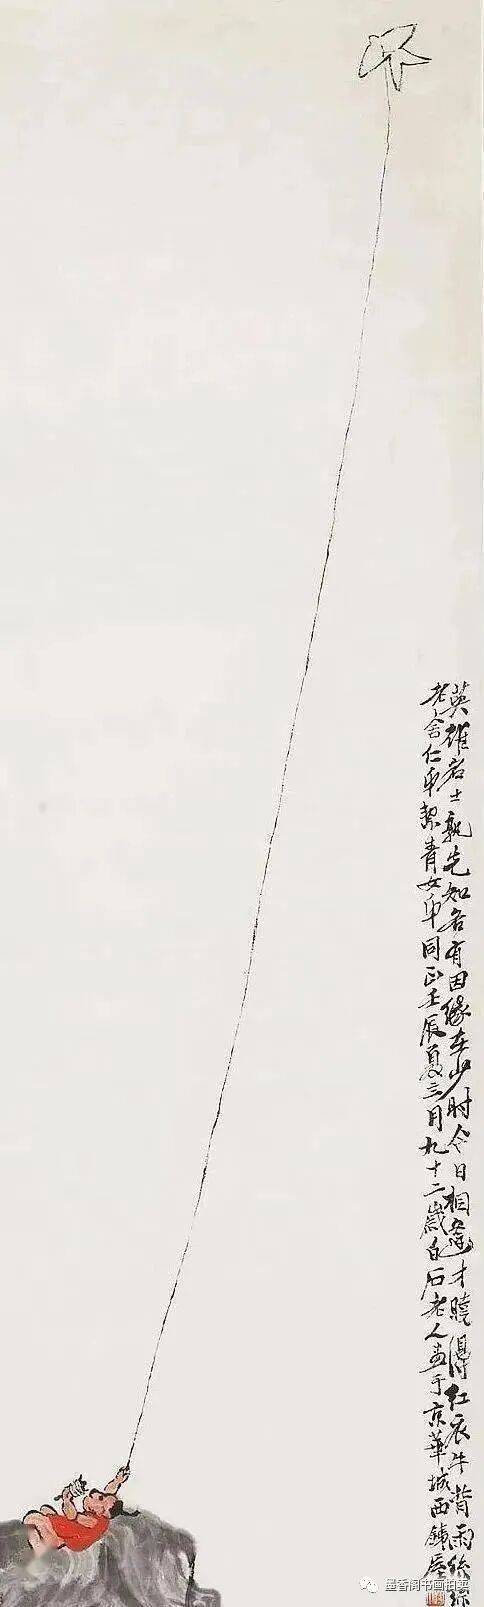 英雄名士孰先知各有因缘在少时今日相逢才晓得红衣牛背雨丝丝
老舍仁弟絜青女弟同正壬辰夏三月九十二岁白石老人画于京华城西铁屋
墨香阁书画拍卖